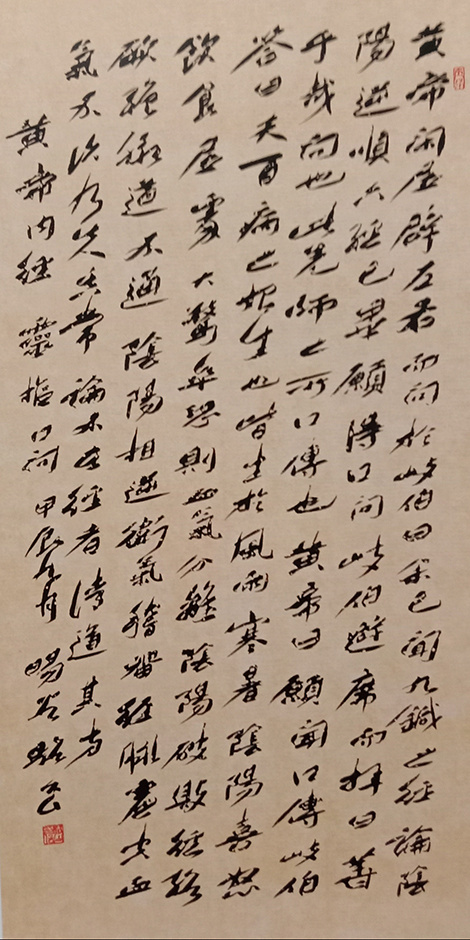 黄帝閑居辟左右而問於岐伯曰余已聞九鍼之經論陰
陽逆順六經已畢願得口問岐伯避席再拜曰善
乎哉問也此先師之所口傳也黄帝曰願聞口傳岐伯
答曰夫百病之始生也皆生於風雨寒暑陰陽喜怒
飲食居處大驚卒恐則血氣分離陰陽破散經絡
厥絶脉道不通陰陽相逆衛氣稽留經脉虚空血
氣不次乃失其常論不在經者請道其方
黄帝内經靈樞口問甲辰